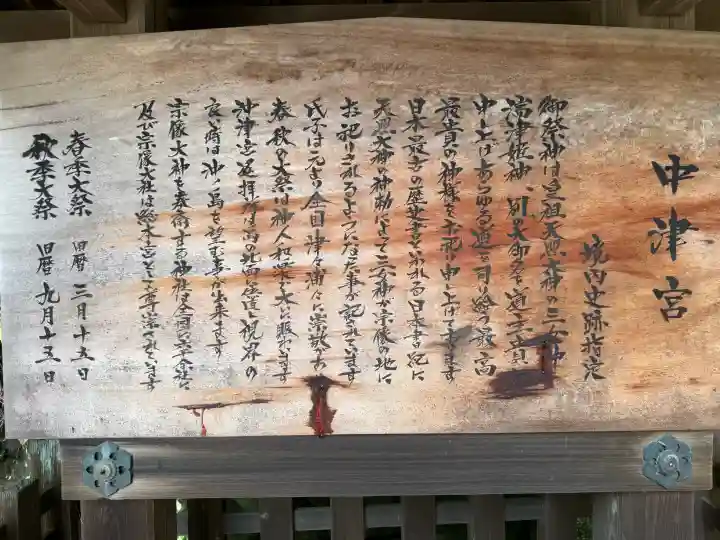 中津宮
境内史跡指定
御祭神は皇祖天照大神の三女神
湍津姫神、別の大御名を道主貴と
申し上げあらゆる道を司り給う最高
最貴の神様をお祀り申し上げてあります
日本最古の歴史書といわれる日本書紀に
天照大神の神勅によって三女神が宗像の地に
お祀りされるようになった事が記されています
氏子は元より全国津々浦々に崇敬あり
春秋の大祭は神人和楽大いに賑わいます
沖津宮遥拝所は島の北面に
良い時は沖ノ島を望む事が出来ます
宗像大神を奉斎する神社は全国に
宗像大社は総本宮として尊崇されています
春季大祭 旧暦 三月十五日
秋季大祭 旧暦 九月十五日